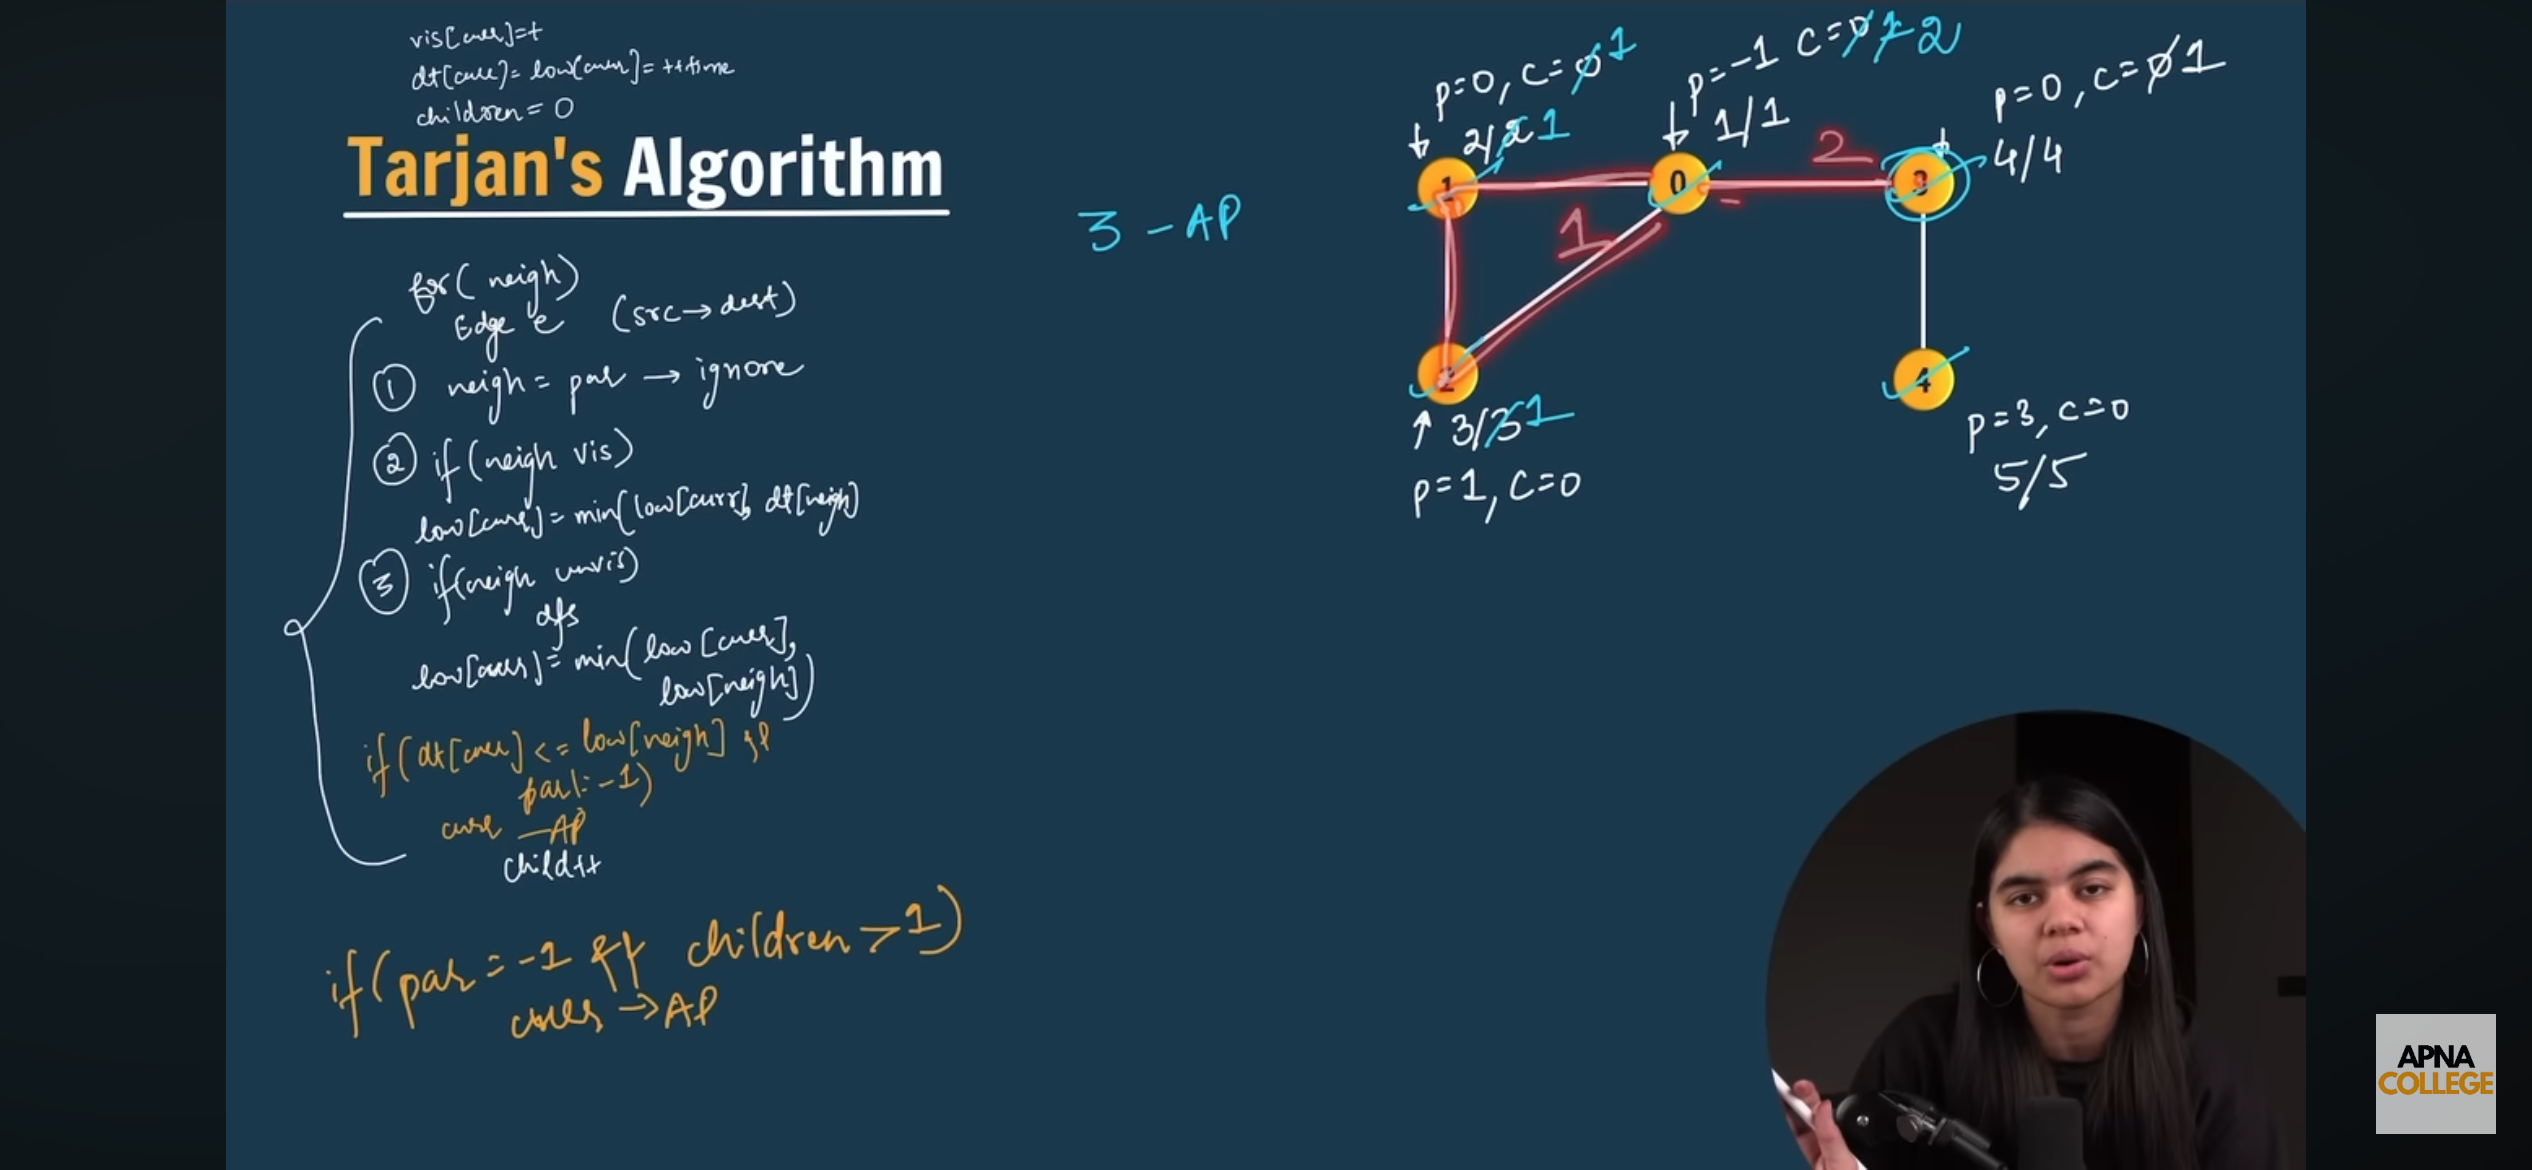 vis[curr]=t
dt[curr]= low[curr]= ++time
children= 0
Tarjan's Algorithm
for( neigh)
Edge e (src→dest)
① neigh= par → ignore
② if(neigh vis)
low[curr]= min(low[curr], dt[neigh]
③ if(neigh unvis)
dfs
low[curr]= min(low[curr],
low[neigh])
if(dt[curr] <= low[neigh] &&
par!=-1)
curr —AP
child++
if(par = -1 && children>1)
curr → AP
3 - AP
p=0, c=0 1
2/2 1
p=-1 c=0 1 2
1/1
p=0, c=0 1
4/4
1
0
2
3
1
2
4
3/3 1
p=1, c=0
p=3, c=0
5/5
APNA
COLLEGE